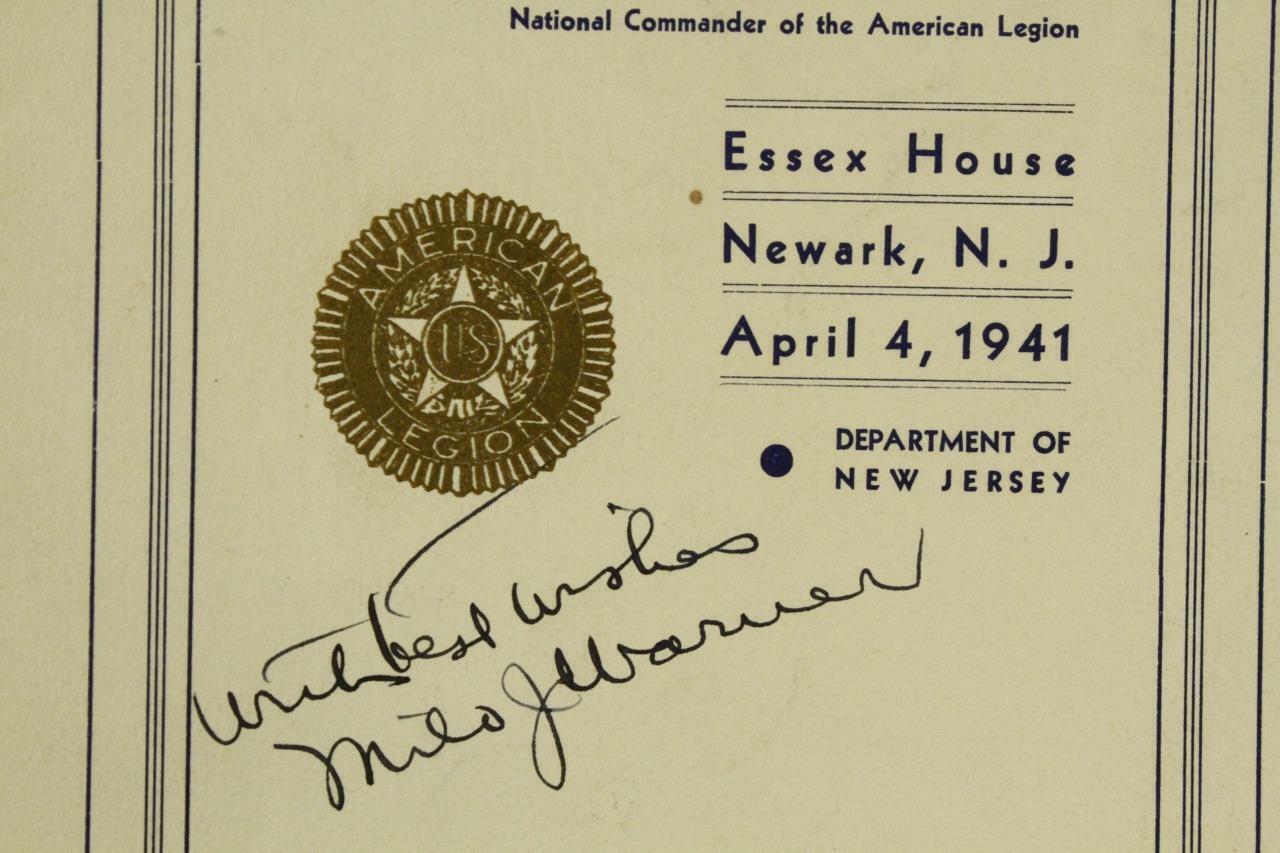 National Commander of the American Legion
Essex House
Newark, N. J.
April 4, 1941
AMERICAN
US
LEGION
DEPARTMENT OF
NEW JERSEY
With best wishes
Milo J Warner